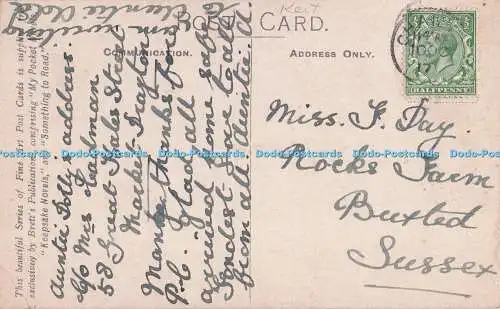 POST CARD.
Keit
COMMUNICATION.
ADDRESS ONLY.
This beautiful Series of Fine Art Post Cards is supplied
exclusively by Brett's Publications comprising "My Pocket Novels,"
"Keepsake Novels," and "Something to Read."
Auntie Dolly address.
C/o Mrs
58 Great Hales Street
Market Drayton
Many Thanks for
P.C. Glad all
arrived home safe
Fondest love to all
from all Auntie A.
writing
Auntie
Miss. F. Day.
Rocks Farm
Buxted
Sussex
HALFPENNY
17
Dodo-Postcards Dodo-Postcards Dodo-Postcards Dodo-Postcards Dodo-Postcards